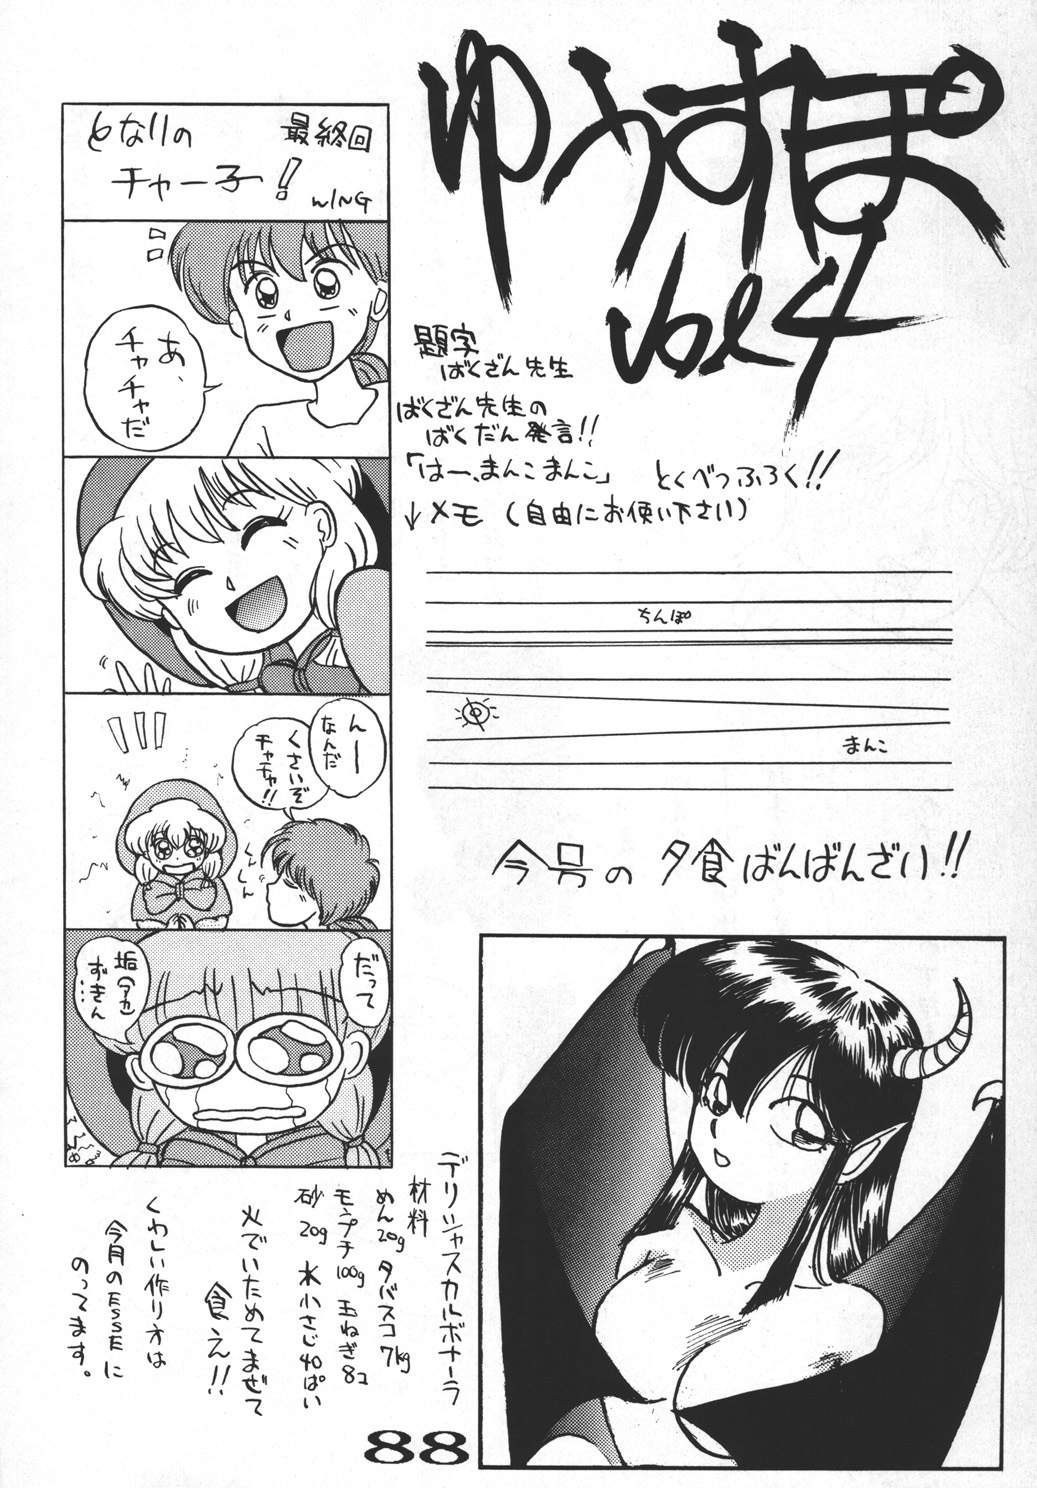 ゆうすぽ
Vol 4
題字
ばくざん先生
ばくざん先生の
ばくだん発言!!
「はー、まんこまんこ」
とくべつふろく!!
↓メモ(自由にお使い下さい)
ちんぽ
まんこ
今号の夕食ばんばんざい!!
となりの
チャー子!
最終回
WING
あ、
チャチャだ
んー
なんだ
くさいぞ
チャチャ!!
くんくん
だって
垢(アカ)
ずきん…
デリシャスカルボナーラ
材料
めん20g タバスコ7kg
モンプチ100g 玉ねぎ8コ
砂20g 水小さじ40ぱい
火でいためてまぜて
食え!!
くわしい作りオは
今月のESSEに
のってます。
88